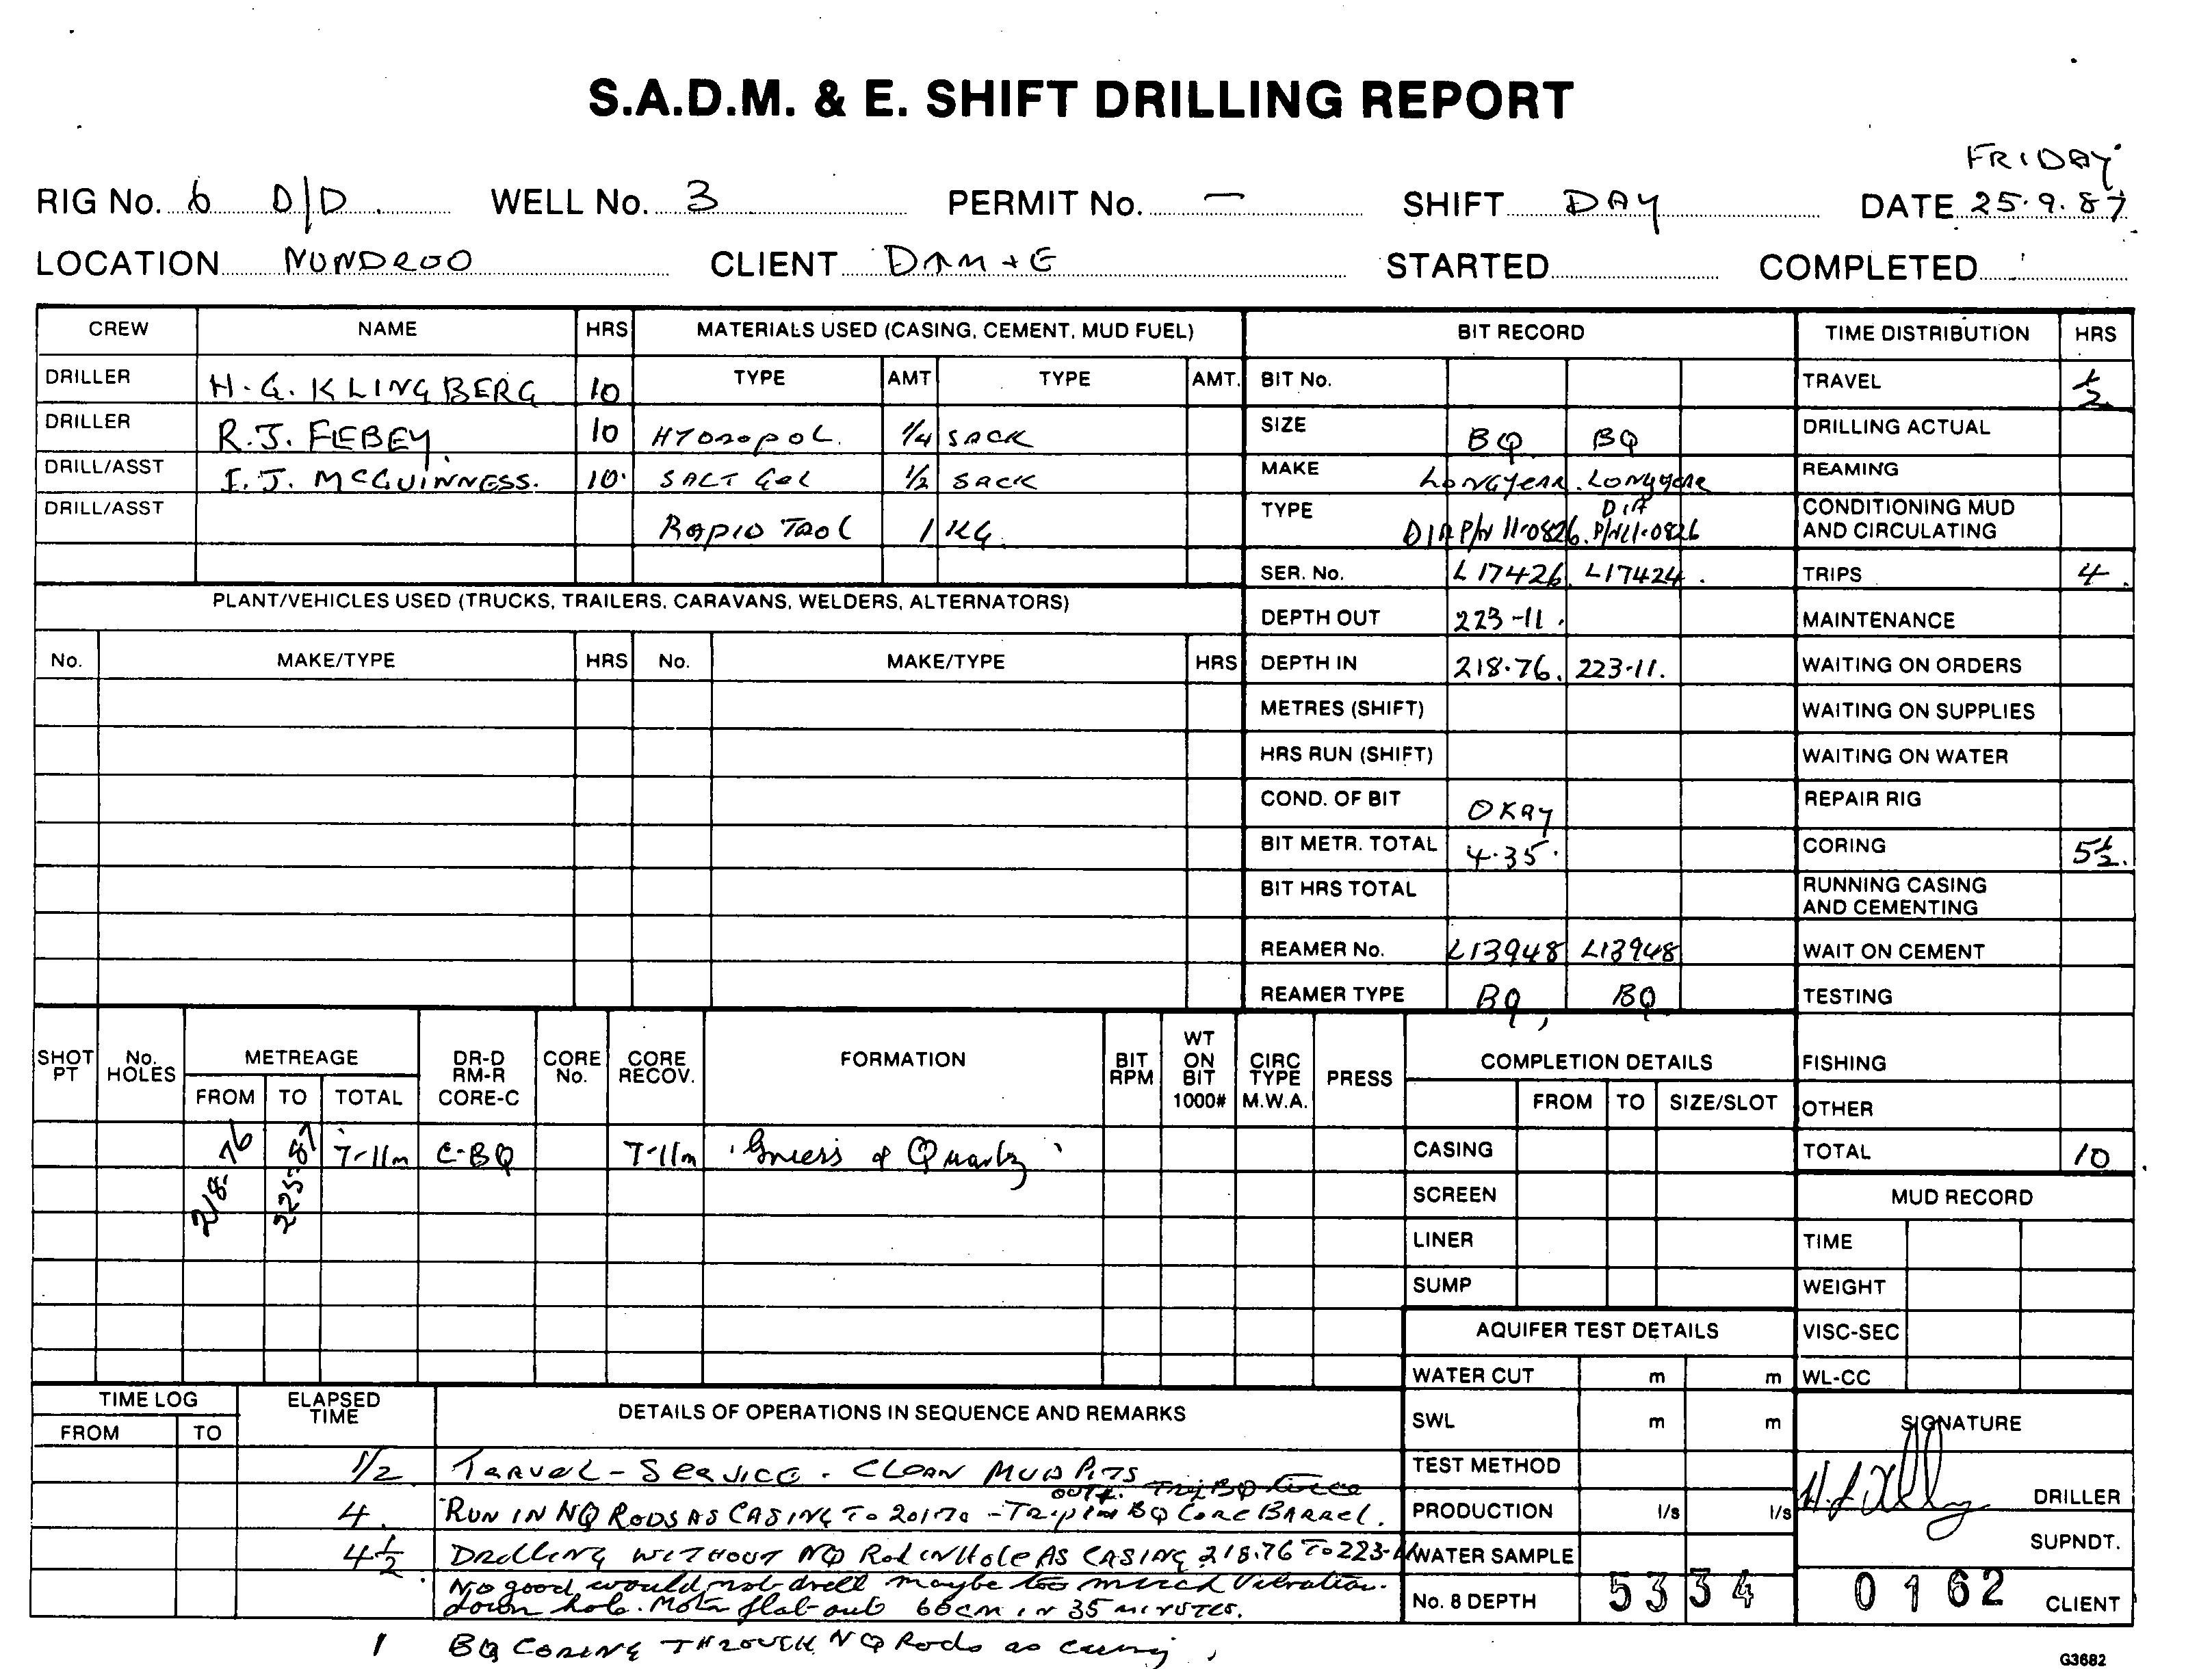 S.A.D.M. & E. SHIFT DRILLING REPORT
FRIDAY
RIG No. 6 D/D. WELL No. 3 PERMIT No. - SHIFT DAY DATE 25.9.87
LOCATION NUNDROO CLIENT DM+E STARTED COMPLETED
CREW NAME HRS MATERIALS USED (CASING, CEMENT, MUD FUEL) BIT RECORD TIME DISTRIBUTION HRS
DRILLER H.G. KLINGBERG 10 TYPE AMT TYPE AMT. BIT No. TRAVEL 1/2
DRILLER R.J. FLEBEY 10 HYDROPOL. 1/4 SACK SIZE BQ BQ DRILLING ACTUAL
DRILL/ASST I.J. MCGUINNESS. 10 SALT GEL 1/2 SACK MAKE LONGYEAR. LONGYEAR REAMING
DRILL/ASST RAPID TROL 1 KG. TYPE DIA P/N 11-0826. DIA P/N 11-0826 CONDITIONING MUD AND CIRCULATING
SER. No. L17426 L17424. TRIPS 4.
PLANT/VEHICLES USED (TRUCKS, TRAILERS, CARAVANS, WELDERS, ALTERNATORS)
DEPTH OUT 223-11. MAINTENANCE
No. MAKE/TYPE HRS No. MAKE/TYPE HRS DEPTH IN 218.76. 223-11. WAITING ON ORDERS
METRES (SHIFT) WAITING ON SUPPLIES
HRS RUN (SHIFT) WAITING ON WATER
COND. OF BIT OKAY REPAIR RIG
BIT METR. TOTAL 4.35. CORING 5 1/2.
BIT HRS TOTAL RUNNING CASING AND CEMENTING
REAMER No. L13948 L13948 WAIT ON CEMENT
REAMER TYPE BQ, BQ TESTING
SHOT PT No. HOLES METREAGE DR-D RM-R CORE-C CORE No. CORE RECOV. FORMATION BIT RPM WT ON BIT 1000# CIRC TYPE M.W.A. PRESS COMPLETION DETAILS FISHING
FROM TO TOTAL FROM TO SIZE/SLOT OTHER
218.76 225-87 7-11m C-BQ 7-11m Gneiss & Quartz CASING TOTAL 10
SCREEN MUD RECORD
LINER TIME
SUMP WEIGHT
AQUIFER TEST DETAILS VISC-SEC
WATER CUT m m WL-CC
TIME LOG ELAPSED TIME DETAILS OF OPERATIONS IN SEQUENCE AND REMARKS SWL m m SIGNATURE
FROM TO
1/2 TRAVEL - SERVICE. CLEAN MUD PITS TEST METHOD
OUT &
4. RUN IN NQ RODS AS CASING TO 201-70 - TRIP IN BQ CORE BARREL. PRODUCTION l/s l/s DRILLER
SUPNDT.
4 1/2 DRILLING WITHOUT NQ Rod in Hole AS CASING 218.76 TO 223-11 WATER SAMPLE
No good would not drill maybe too much Vibration.
down hole. Motor flat-out 60cm in 35 MINUTES. No. 8 DEPTH 5334 0162 CLIENT
1 BQ CORING THROUGH NQ Rods as casing,
G3682